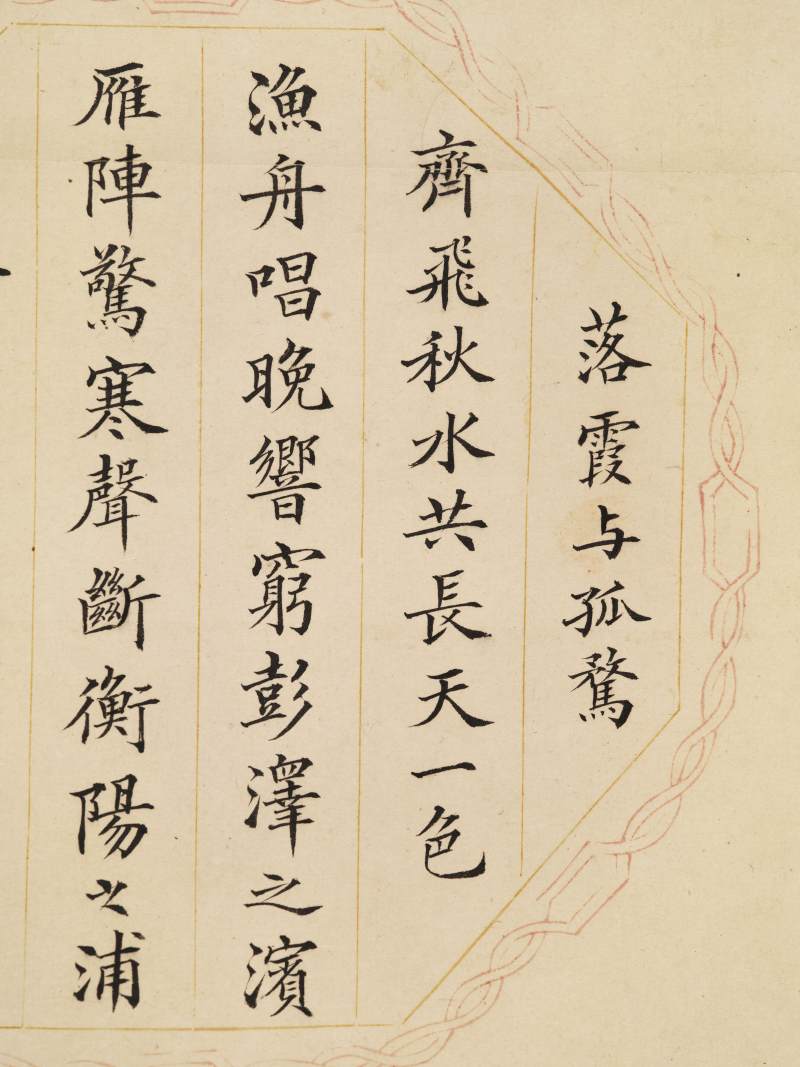 落霞与孤鶩
齊飛秋水共長天一色
漁舟唱晚響窮彭澤之濱
雁陣驚寒聲斷衡陽之浦